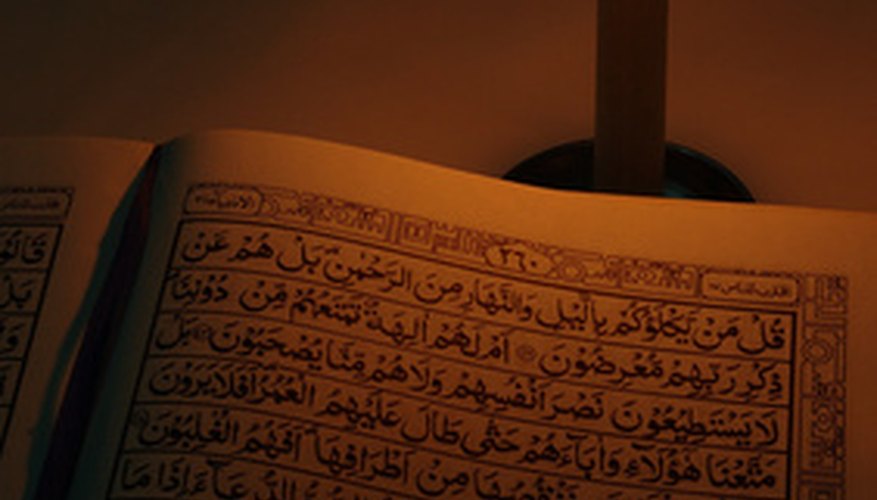 الانبیاء ٢١
٣٦٠
اقترب للناس ١٧
قُلْ مَنْ يَّكْلَؤُكُمْ بِالَّيْلِ وَالنَّهَارِ مِنَ الرَّحْمٰنِ ؕ بَلْ هُمْ عَنْ
ذِكْرِ رَبِّهِمْ مُّعْرِضُوْنَ اَمْ لَهُمْ اٰلِهَةٌ تَمْنَعُهُمْ مِّنْ دُوْنِنَا
لَا يَسْتَطِيْعُوْنَ نَصْرَ اَنْفُسِهِمْ وَلَا هُمْ مِّنَّا يُصْحَبُوْنَ بَلْ
مَتَّعْنَا هٰٓؤُلَآءِ وَاٰبَآءَهُمْ حَتّٰى طَالَ عَلَيْهِمُ الْعُمُرُ ؕ اَفَلَا يَرَوْنَ
نَنْقُصُهَا مِنْ اَطْرَافِهَا ؕ اَفَهُمُ الْغٰلِبُوْنَ
الدُّعَآءَ اِذَا مَا
قَالُوْا
بَلْ